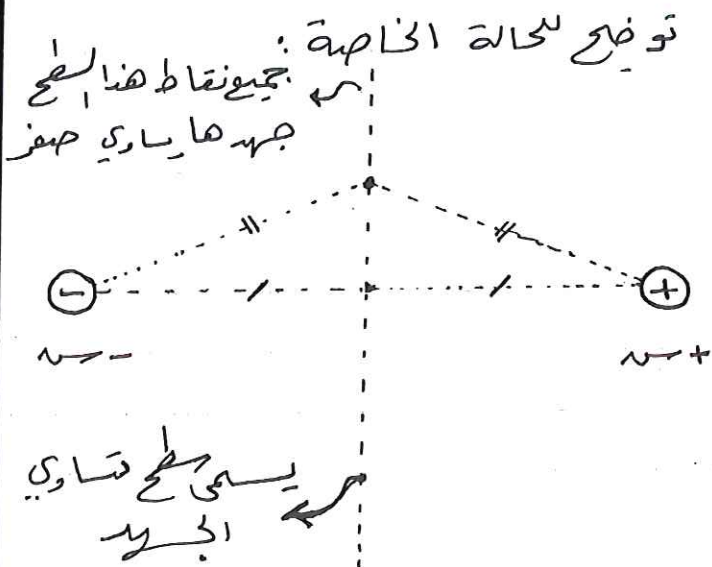 توضيح للحالة الخاصة :
جميع نقاط هذا السطح
جهدها يساوي صفر
-
+
- سـ
+ سـ
يسمى سطح تساوي
الجهد